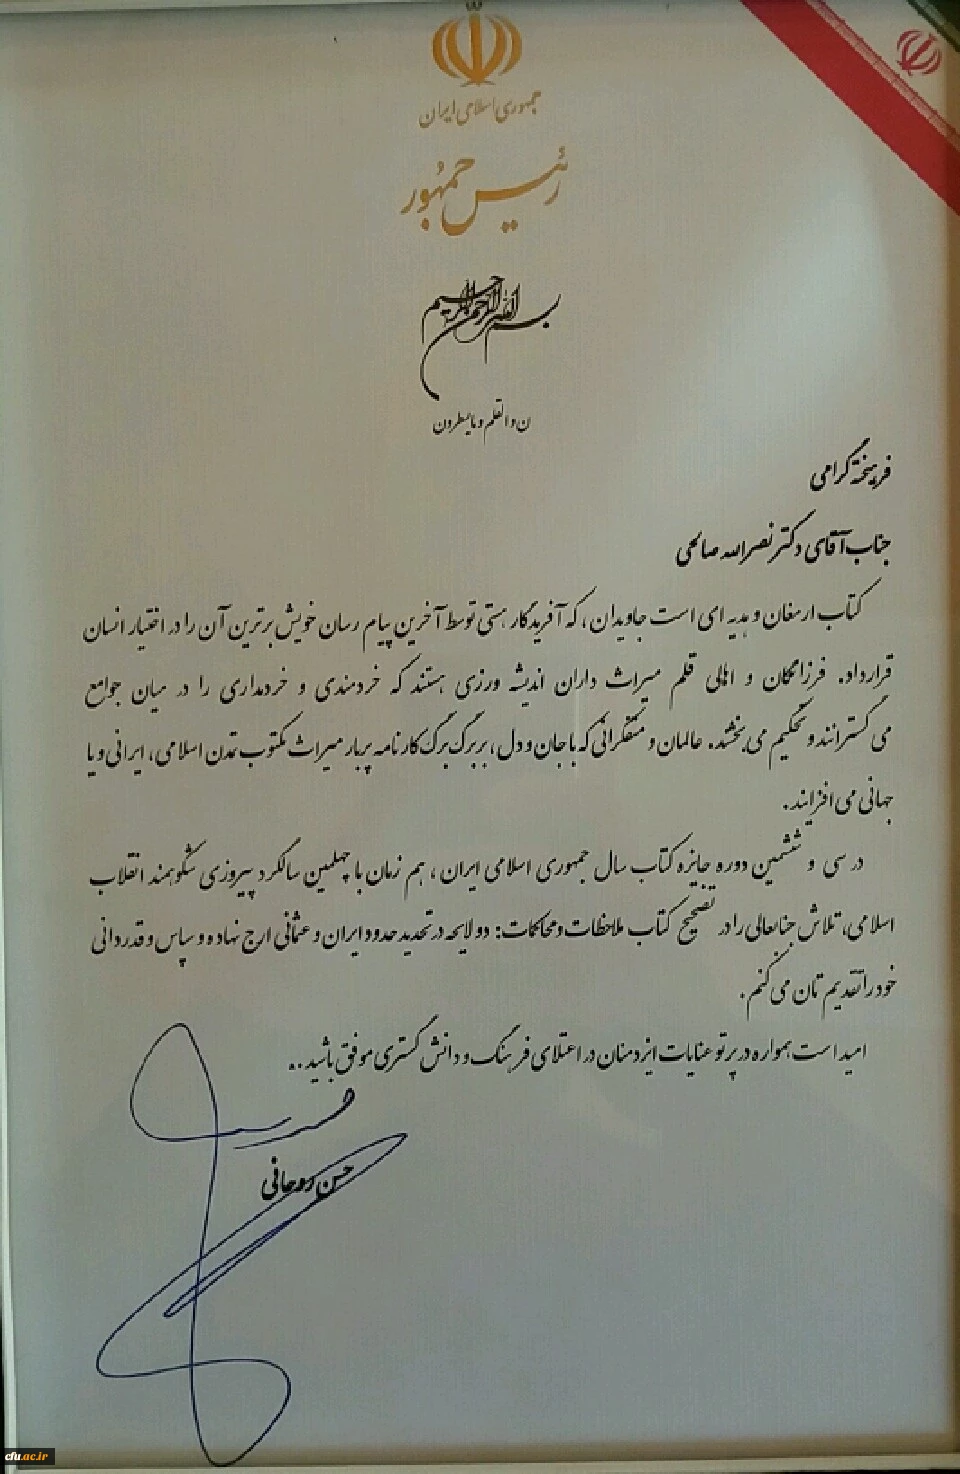 جمهوری اسلامی ایران
رئیس جمهور
بسم الله الرحمن الرحیم
ن والقلم و ما یسطرون
فرهیخته گرامی
جناب آقای دکتر نصرالله صالحی
کتاب ارمغان و هدیه ای است جاویدان، که آفریدگار هستی توسط آخرین پیام رسان خویش برترین آن را در اختیار انسان
قرارداد. فرزانگان و اهالی قلم میراث داران اندیشه ورزی هستند که خردمندی و خردمداری را در میان جوامع
می گسترانند و تحکیم می بخشند. عالمان و متفکرانی که با جان و دل، بر برگ برگ کارنامه پربار میراث مکتوب تمدن اسلامی، ایرانی و یا
جهانی می افزایند.
در سی و ششمین دوره جایزه کتاب سال جمهوری اسلامی ایران، هم زمان با چهلمین سالگرد پیروزی شکوهمند انقلاب
اسلامی، تلاش جنابعالی را در تصحیح کتاب ملاحظات و محاکمات: دو لایحه در تحدید حدود ایران و عثمانی ارج نهاده و سپاس و قدردانی
خود را تقدیم تان می کنم.
امید است همواره در پرتو عنایات ایزد منان در اعتلای فرهنگ و دانش گستری موفق باشید..
حسن روحانی
cfu.ac.ir